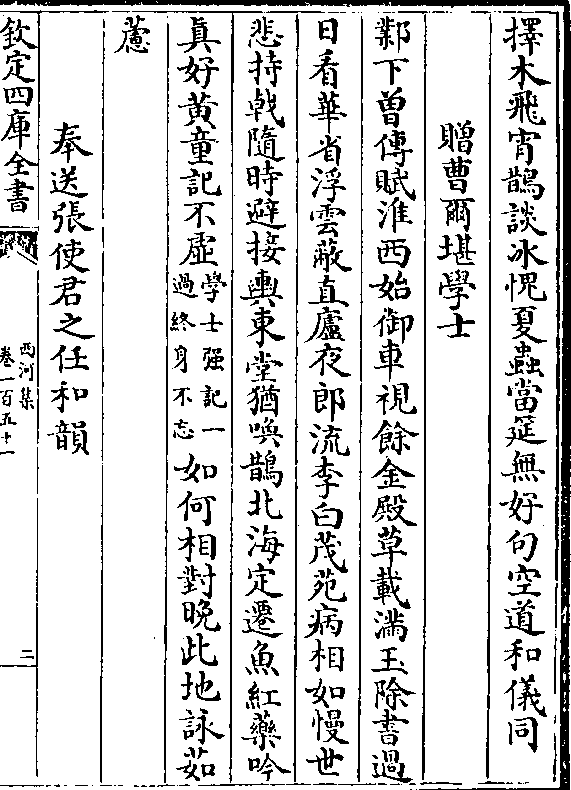 擇木飛宵鵲談冰愧夏蟲當筵無好句空道和儀同
贈曹爾堪學士
鄴下曾傳賦淮西始御車視餘金殿草載滿玉除書過
日看華省浮雲蔽直廬夜郎流李白茂苑病相如慢世
悲持戟隨時避接輿東堂猶喚鵲北海定遷魚紅藥吟
真好黃童記不虛學士强記一過終身不忘如何相對晚此地詠茹
藘
奉送張使君之任和韻
欽定四庫全書
西河集
卷一百五十一
二